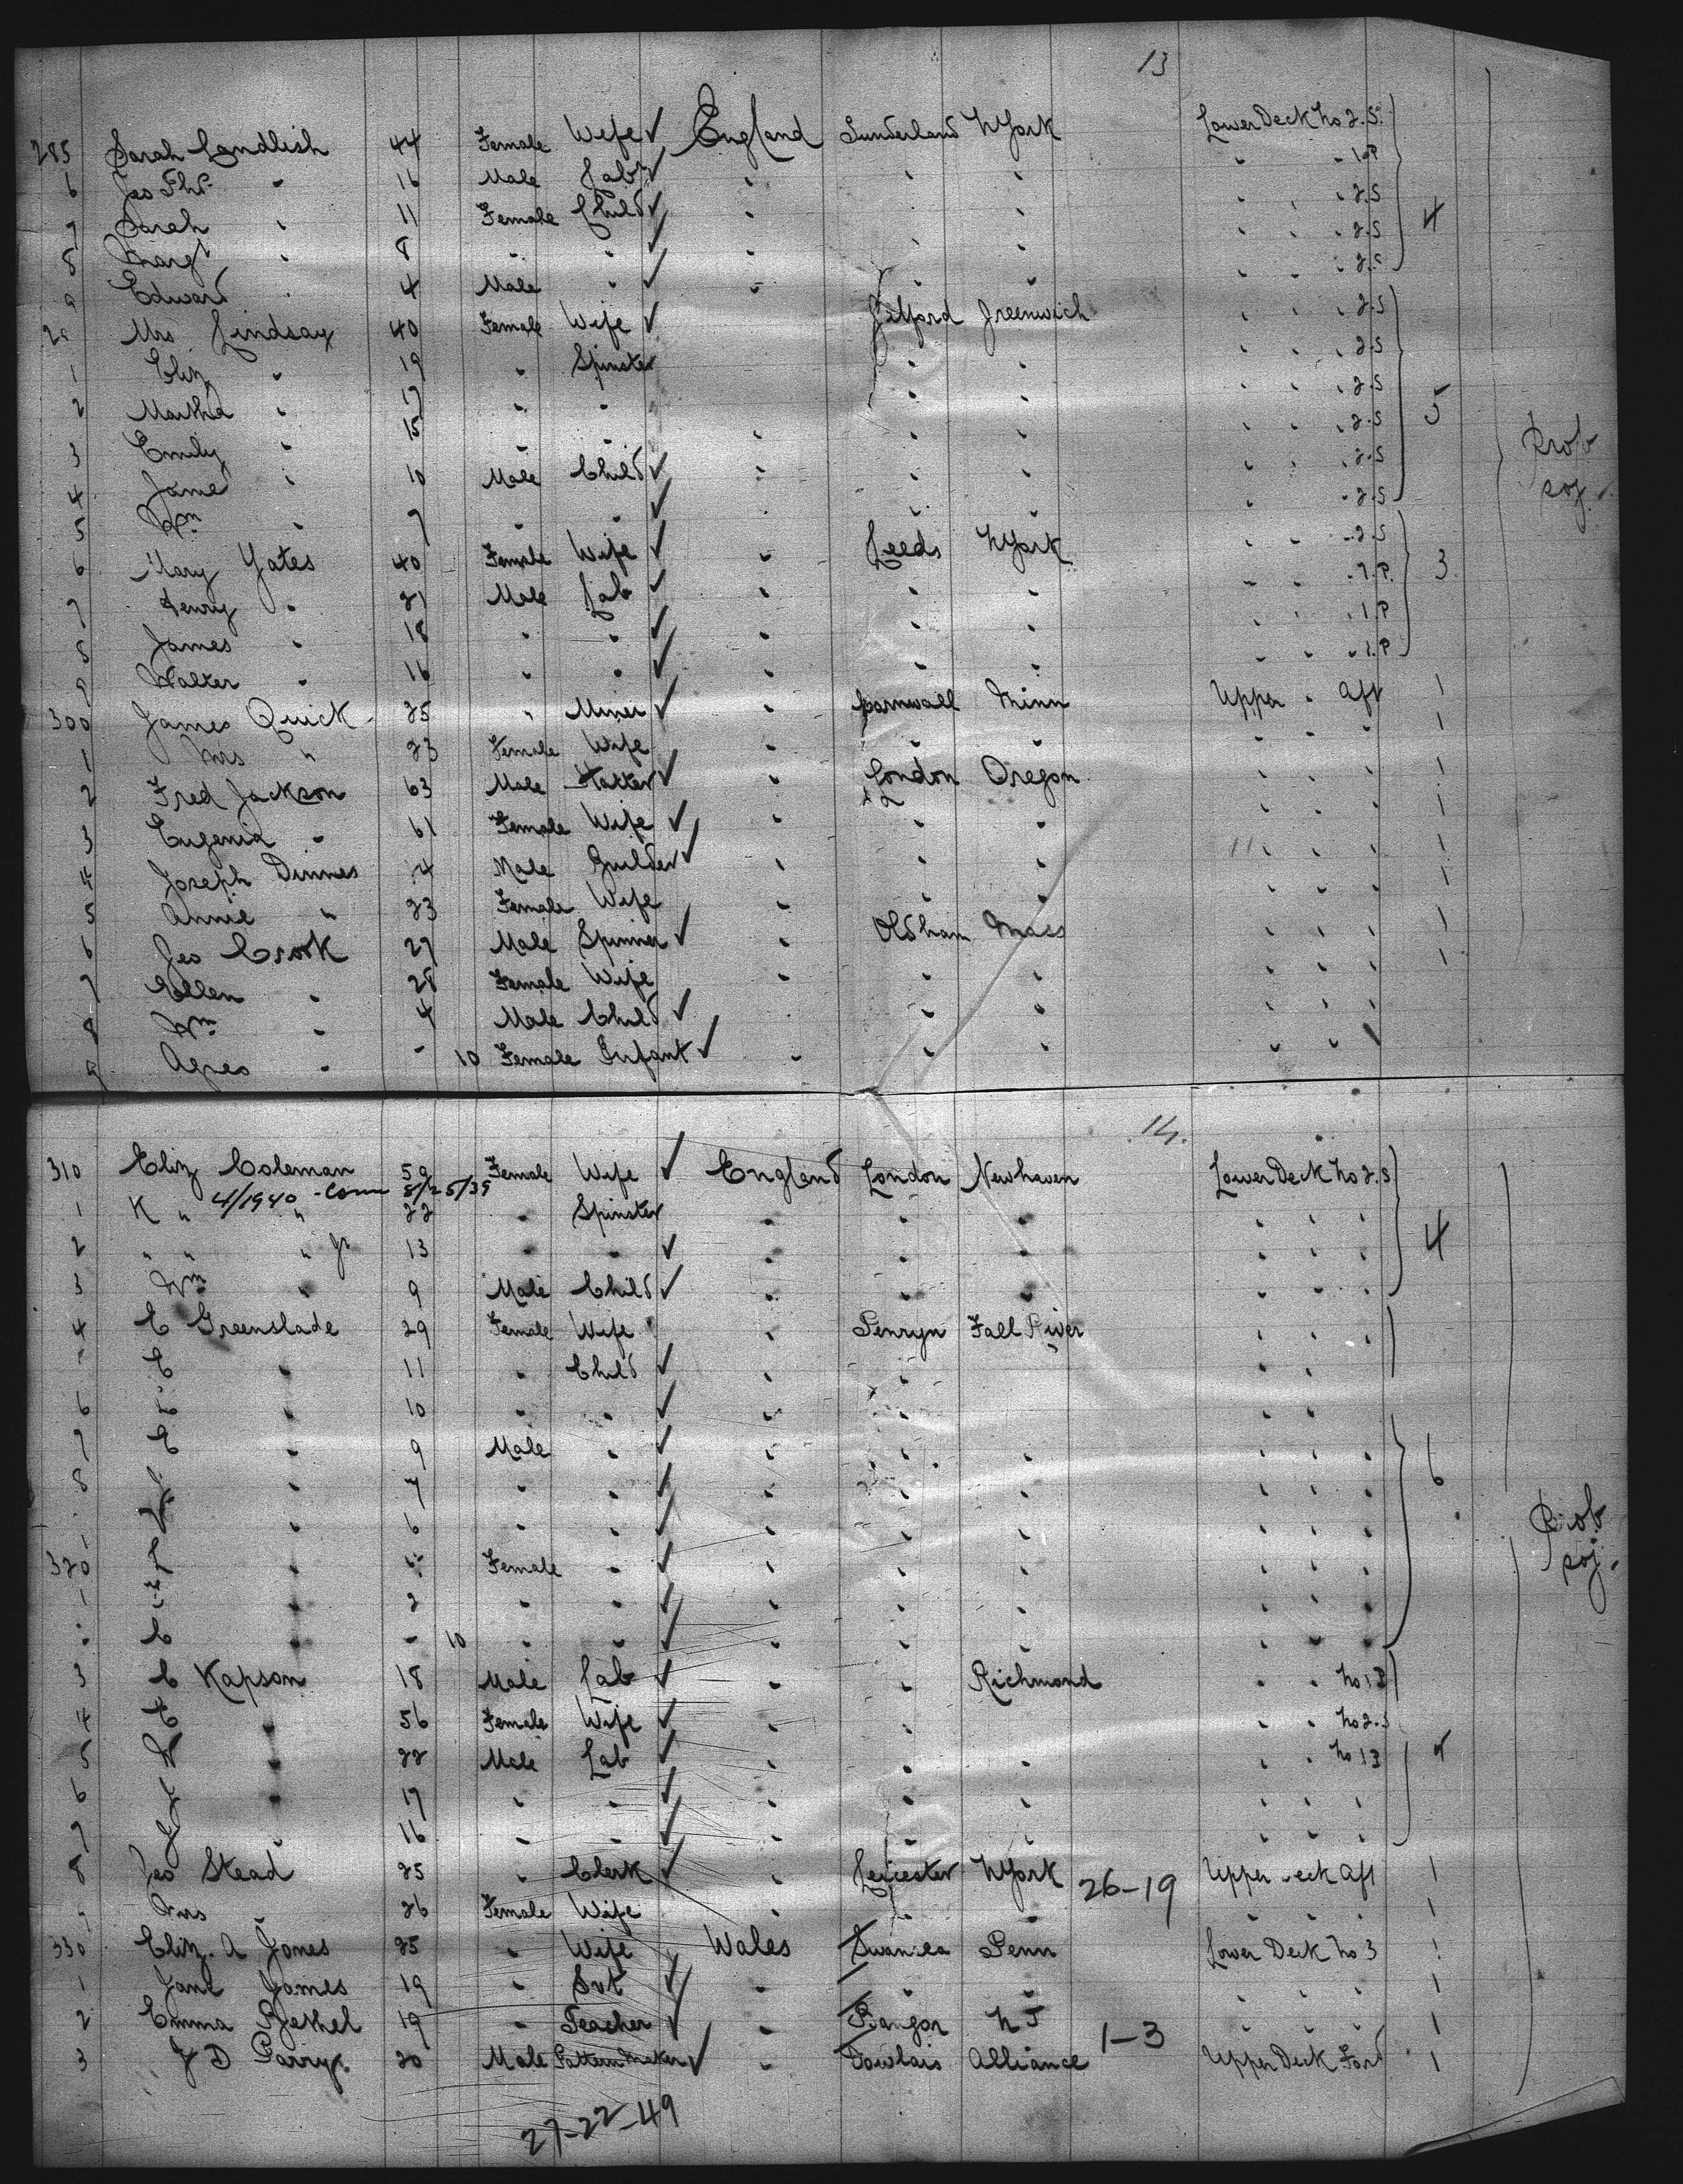 13
285 Sarah Candlish 44 Female Wife ✓ England Sunderland NYork Lower Deck No 2.S.
6 Geo Thos " 16 Male Labr ✓ " " " " " 1.P
7 Sarah " 11 Female Child ✓ " " " " " 2.S 4
8 Margt " 8 " " ✓ " " " " " 2.S
9 Edward " 4 Male " ✓ " " " " " 2.S
29 Mrs Lindsay 40 Female Wife ✓ Greenwich " " 2.S
1 Eliz " 19 " Spinster " " " " 2.S
2 Martha " 17 " " " " " " 2.S 5
3 Emily " 15 " " " " " " " 2.S
4 Jame " 10 Male Child ✓ " " " " " 2.S
5 Wm " 9 " " ✓ " " " " 2.S
6 Mary Yates 40 Female Wife ✓ " Leeds NYork " " 2.S
7 Henry " 21 Male Lab ✓ " " " " " 1.P. 3
8 James " 18 " " ✓ " " " " " 1.P
9 Walter " 16 " " ✓ " " " " " 1.P
300 James Quick 25 " Miner ✓ " Cornwall Minn Upper " Aft 1
1 Mrs " 23 Female Wife " " " " " " 1
2 Fred Jackson 63 Male Hatter ✓ " London Oregon " " " 1
3 Eugenia " 61 Female Wife ✓ " " " " " " 1
4 Joseph Dinnes Male Builder ✓ " " " " " " 1
5 Annie " 23 Female Wife " " " " " " 1
6 Geo Crook 27 Male Spinner ✓ " Oldham Mass " " " 1
7 Ellen " 28 Female Wife " " " " " " 1
8 Wm " 4 Male Child ✓ " " " " "
9 Agnes " - 10 Female Infant ✓ " " " " "
14.
310 Eliz Coleman 59 Female Wife ✓ England London Newhaven Lower Deck No 2.S
4/1940 - Conn 8/25/39
1 K " " 22 " Spinster " " " " " "
2 " " " Jr 13 " " ✓ " " " " " " 4
3 Wm " 9 Male Child ✓ " " " " " "
4 E Greenslade 29 Female Wife " Penryn Fall River " " "
E " 11 " Child ✓ " " " "
6 " 10 " " ✓ " " " "
7 E " 9 Male " ✓ " " " " " "
8 J " 7 " " ✓ " " " " " " 6
" 6 " " ✓ " " " " " "
320 " Female " ✓ " " " " " "
1 " 2 " " ✓ " " " " " "
C " - 10 " " ✓ " " " " " "
Prob soj.
Prob soj.
3 C Kapson 18 Male Lab ✓ " " Richmond " " No 1 P
4 E " 56 Female Wife ✓ " " " " No 2.S
5 W " 22 Male Lab ✓ " " " " " No 1 P 4
6 J " 17 " " ✓ " " " " " "
7 J " 16 " " ✓ " " " " " "
8 Geo Stead 25 " Clerk ✓ " Leicester NYork 26-19 Upper Deck Aft 1
9 Mrs " 26 Female Wife " " " " " " 1
330 Eliz. A Jones 25 " Wife Wales Swansea Penn Lower Deck No 3 1
1 Jane James 19 " Svt ✓ " " " " " " 1
2 Emma Bethel 19 " Teacher ✓ " Bangor NJ " " " 1
3 J D Parry. 20 Male Pattern Maker ✓ " Dowlais Alliance 1-3 Upper Deck Ford 1
27-22-49